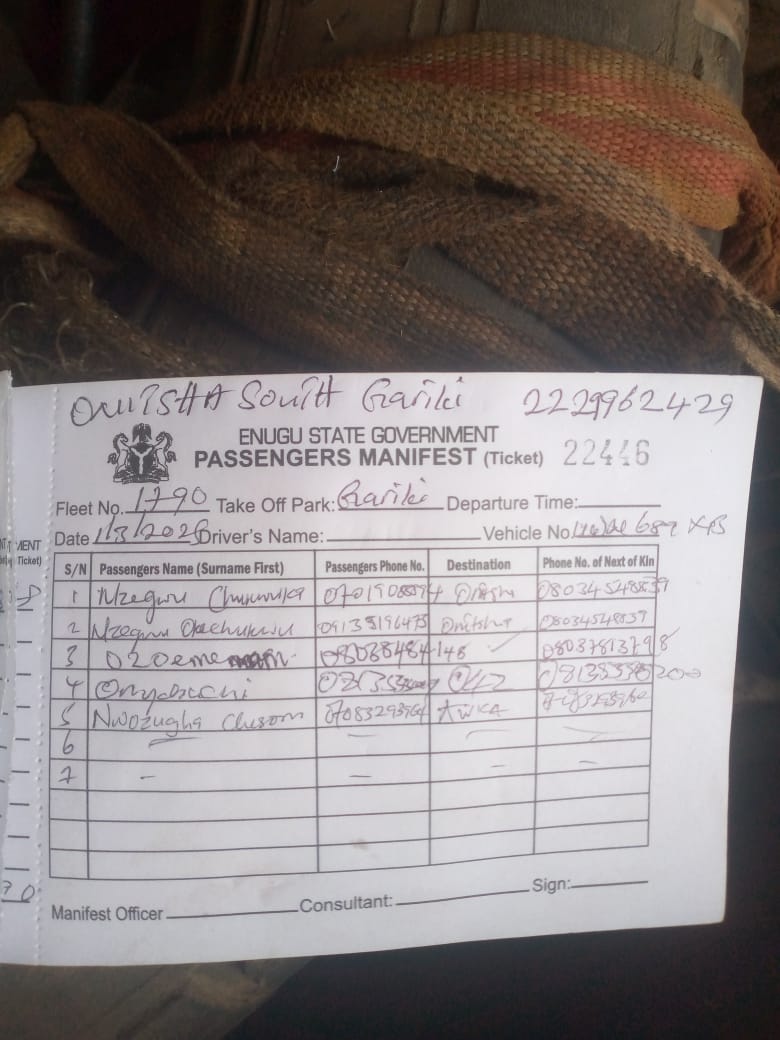 ONITSHA SOUTH Gariki 2229962429
ENUGU STATE GOVERNMENT
PASSENGERS MANIFEST (Ticket) 22446
Fleet No. 1790 Take Off Park: Gariki Departure Time:
Date 1/3/2026 Driver's Name: Vehicle No. 689 XB
S/N Passengers Name (Surname First) Passengers Phone No. Destination Phone No. of Next of Kin
1 Nzegwu Chukwuka Onitsha
2 Nzegwu Okechukwu 09135196475 Onitsha 08034548839
3 Ozoemenam 08038484148 08037813798
4 Onyebuchi
5 Nwozugha Chisom 07083293960 AWKA
6
7
Manifest Officer Consultant: Sign:
MENT
Ticket)
70